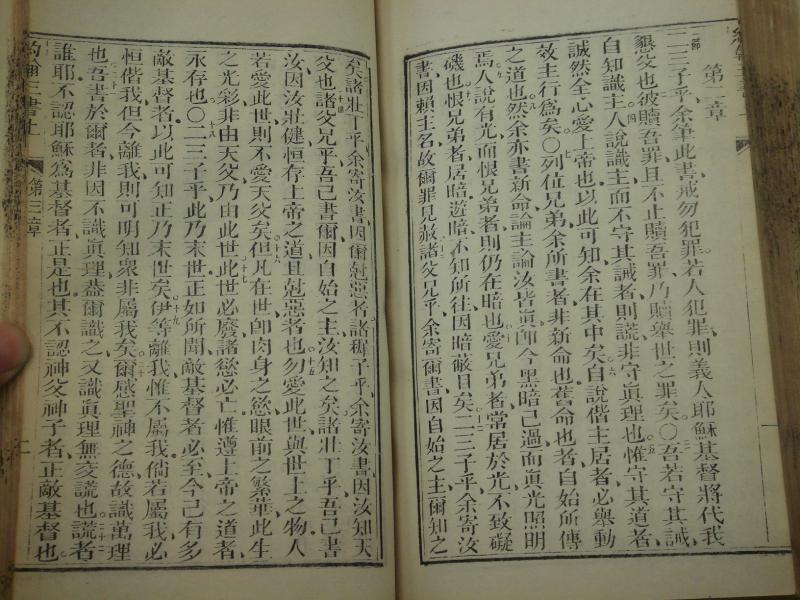 第二章
二三子乎余筆此書戒勿犯罪若人犯罪則義人耶穌基督將代我
懇父也彼贖吾罪且不止贖吾罪乃贖舉世之罪矣〇吾若守其誡
自知識主人說識主而不守其誡者則謊非守眞理也惟守其道者
誠然全心愛上帝也以此可知余在其中矣自說偕主居者必舉動
效主行爲矣〇列位兄弟余所書者非新命也舊命也者自始所傳
之道也然余亦書新命論主論汝皆眞卽今黑暗已過而眞光照明
焉人說有光而恨兄弟者則仍在暗也愛兄弟者常居於光不致礙
磯也恨兄弟者居暗遊暗不知所往因暗蔽目矣二三子乎余寄汝
書因賴主名故爾罪見赦諸父兄乎余寄爾書因自始之主爾知之
矣諸壯丁乎余寄汝書因爾尅惡者諸穉子乎余寄汝書因汝知天
父也諸父兄乎吾已書爾因自始之主汝知之矣諸壯丁乎吾已書
汝因汝壯健恒存上帝之道且尅惡者也勿愛此世與世上之物人
若愛此世則不愛天父矣但凡在世卽肉身之慾眼前之繁華此生
之光彩非由天父乃由此世此世必廢諸慾必亡惟遵上帝之道者
永存也〇二三子乎此乃末世正如所聞敵基督者必至今已有多
敵基督者以此可知正乃末世矣伊等離我惟不屬我倘若屬我必
恒偕我但今離我則可明知衆非屬我矣爾感聖神之德故識萬理
也吾書於爾者非因不識眞理葢爾識之又識眞理無交謊也謊者
誰耶不認耶穌爲基督者正是也其不認神父神子者正敵基督也
約翰上書上
第三章